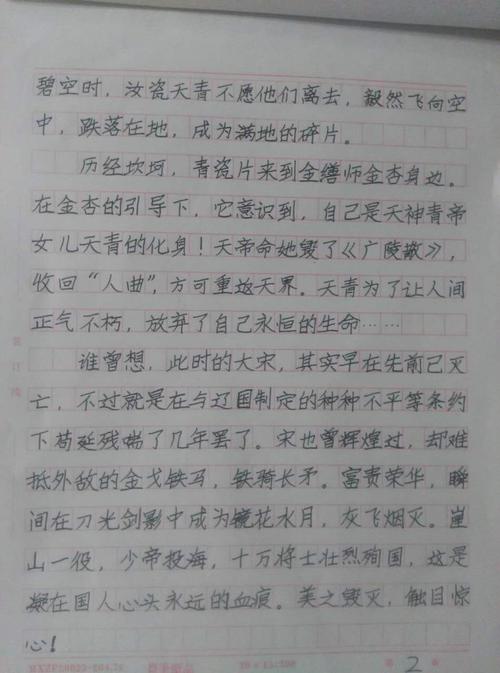 碧空时，汝瓷天青不愿他们离去，毅然飞向空
中，跌落在地，成为满地的碎片。
历经坎坷，青瓷片来到金缮师金杏身边。
在金杏的引导下，它意识到，自己是天神青帝
女儿天青的化身！天帝命她毁了《广陵散》，
收回“人曲”，方可重返天界。天青为了让人间
正气不朽，放弃了自己永恒的生命……
谁曾想，此时的大宋，其实早在先前已灭
亡，不过就是在与辽国制定的种种不平等条约
下苟延残喘了几年罢了。宋也曾辉煌过，却难
抵外敌的金戈铁马，铁骑长矛。富贵荣华，瞬
间在刀光剑影中成为镜花水月，灰飞烟灭。崖
山一役，少帝投海，十万将士壮烈殉国，这是
凝在国人心头永远的血痕。美之毁灭，触目惊
心！
第 2